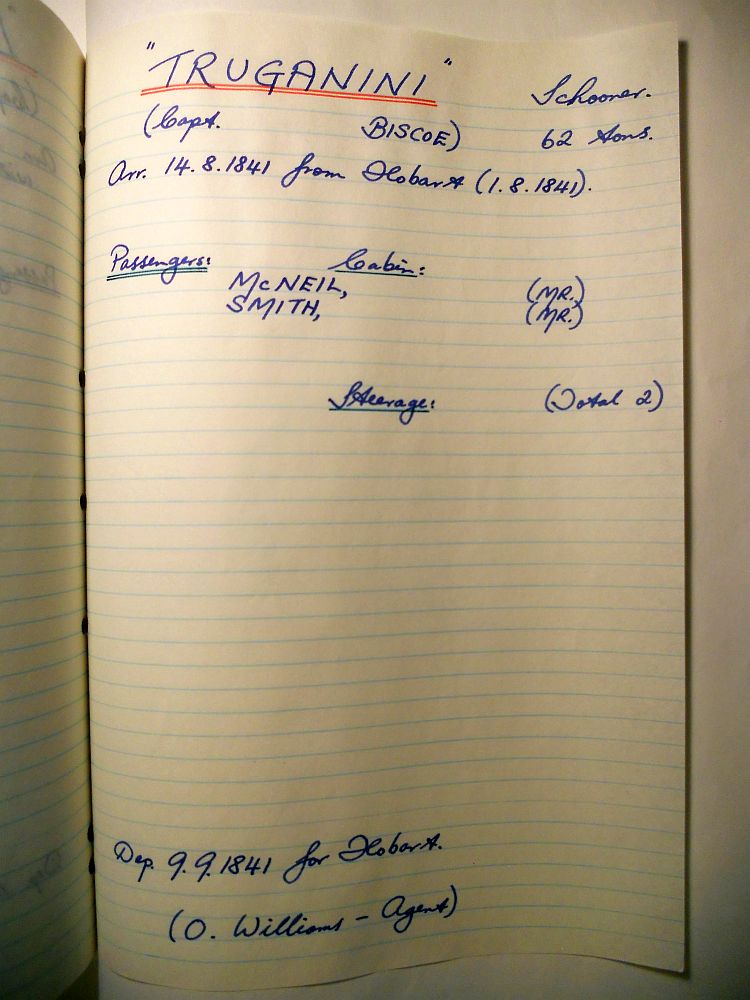 "TRUGANINI" Schooner.
(Capt. BISCOE) 62 tons.
Arr. 14.8.1841 from Hobart (1.8.1841).
Passengers: Cabin:
McNEIL, (MR.)
SMITH, (MR.)
Steerage: (Total 2)
Dep. 9.9.1841 for Hobart.
(O. Williams - Agent)